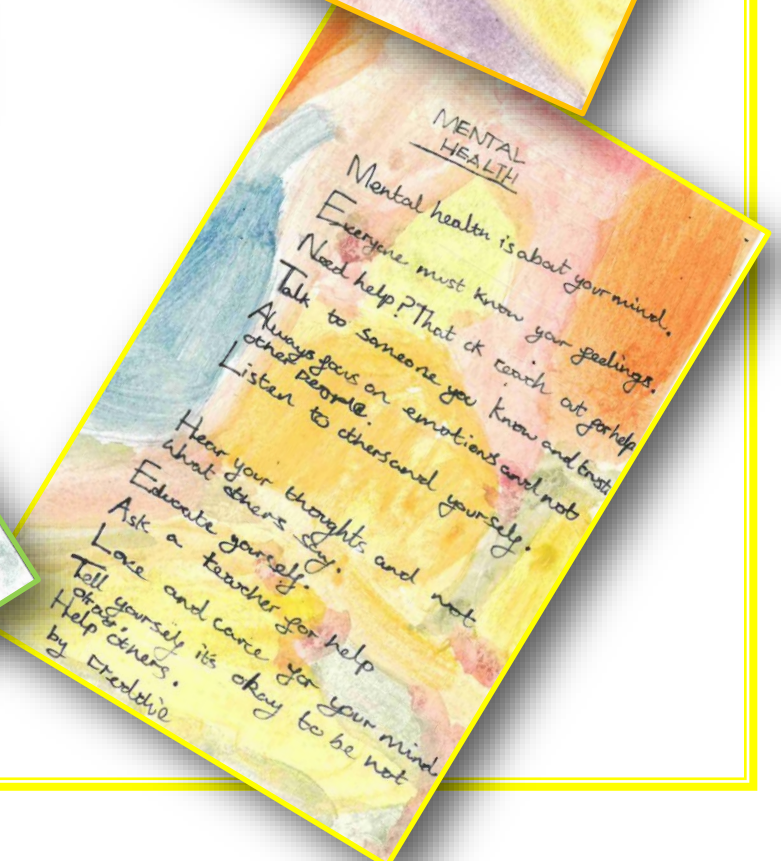 MENTAL
HEALTH
Mental health is about your mind.
Everyone must know your feelings.
Need help? That ok reach out for help
Talk to someone you know and trust.
Always focus on emotions and not
other people.
Listen to others and yourself.
Hear your thoughts and not
what others say.
Educate yourself.
Ask a teacher for help
Love and care for your mind
Tell yourself it's okay to be not
Help others.
by Freddie